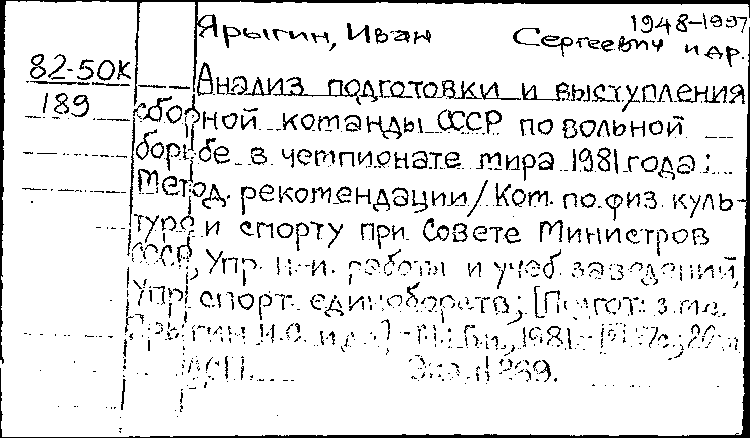 1948-1997
Ярыгин, Иван Сергеевич и др.
82-50К
189
Анализ подготовки и выступления
сборной команды СССР по вольной
борьбе в чемпионате мира 1981 года:
Метод. рекомендации/Ком. по физ. куль-
туре и спорту при Совете Министров
СССР, Упр. н.-и. работы и учеб. заведений,
Упр. спорт. единоборств; [Подгот. з.м.с.
Ярыгин И.С. и др.] - М.: Б.и., 1981.-
Экз. 269.